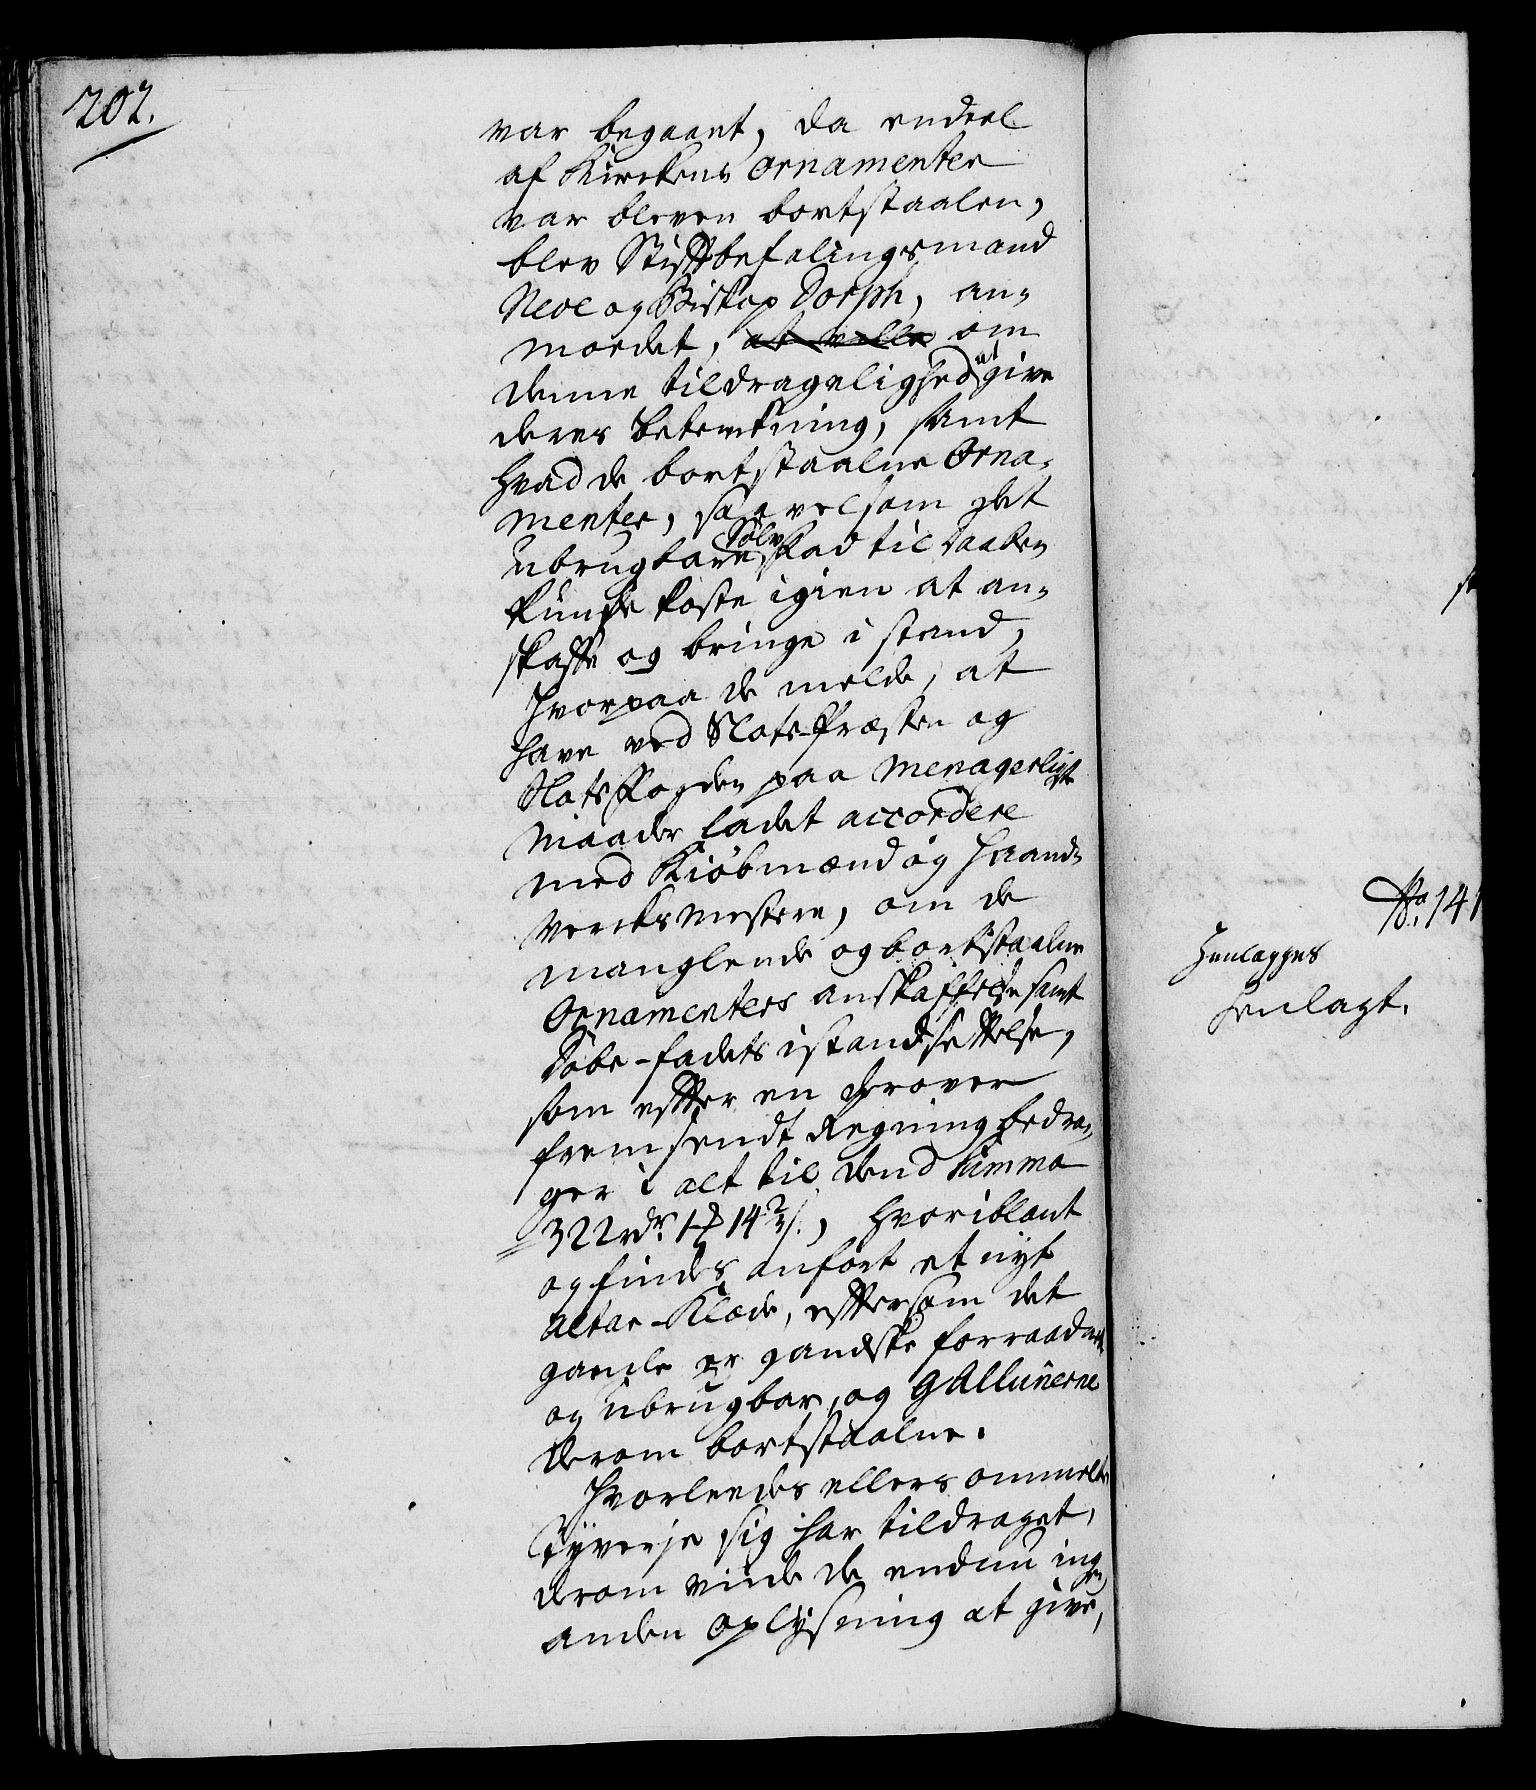 202.
var begaaet, da endeel
af Kirckens Ornamenter
var bleven bortstaalen,
blev Stiftbefalingsmand
Neve og Biskop Dorph, an-
modet, at ville om
denne tildragelighed at give
deres betænkning, samt
hvad de bortstaalne Orna-
menter, saavelsom det
ubrugbare Sølv Fad til Daaben
kunde koste igien at an-
skaffe og bringe i stand,
Hvorpaa de melde, at
have ved Slots-Præsten og
Slotsfogden paa menagerligste
Maader ladet accordere
med Kiøbmænd og Haand-
verksmestere, om de
manglende og bortstaalne
Ornamenters anskaffelse samt
Døbe-fadets istandsættelse,
som efter en derover
fremsendt Regning bedra-
ger i alt til dend Summa
322 rdr. 1 ꝶ 14 2/ ß., hvoriblant
og findes anført et nyt
Altar-Klæde, eftersom det
gamle er gandske forraadnet
og ubrugbar, og Gallunerne
derom bortstaalne.
Hvorledes ellers ommelte
Tyverje sig har tildraget,
derom vide de endnu ingen
anden Oplysning at give,
No. 141
Henlegges
henlagt.